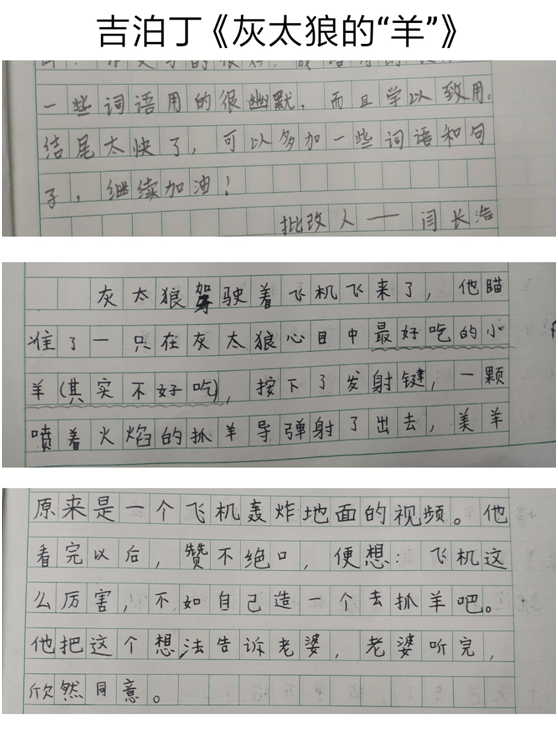 吉泊丁《灰太狼的“羊”》
一些词语用的很幽默，而且学以致用。
结尾太快了，可以多加一些词语和句
子，继续加油！
批改人——闫长浩
灰太狼驾驶着飞机飞来了，他瞄
准了一只在灰太狼心目中最好吃的小
羊(其实不好吃)，按下了发射键，一颗
喷着火焰的抓羊导弹射了出去，美羊
原来是一个飞机轰炸地面的视频。他
看完以后，赞不绝口，便想：飞机这
么厉害，不如自己造一个去抓羊吧。
他把这个想法告诉老婆，老婆听完，
欣然同意。